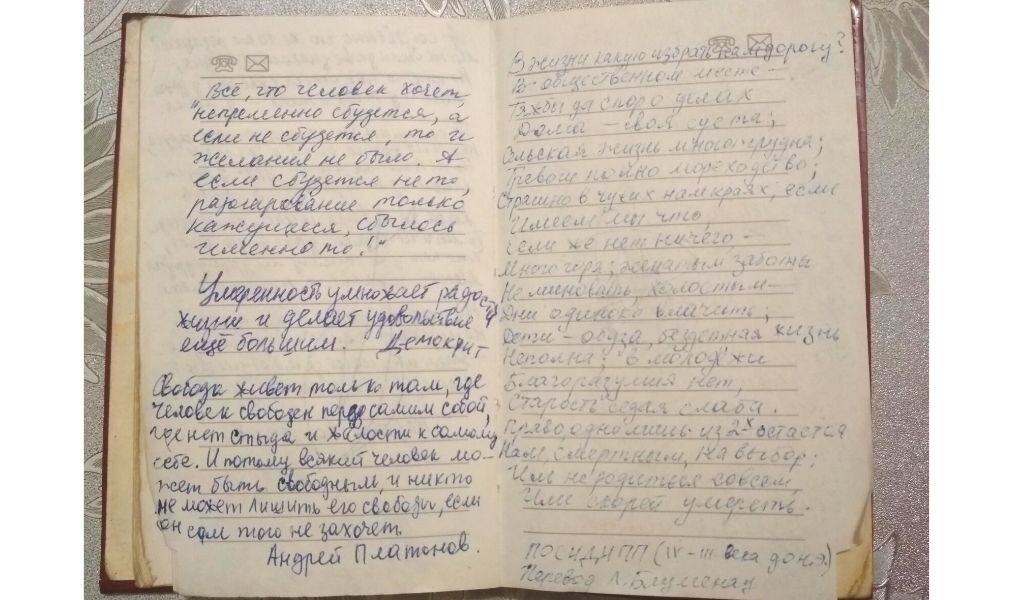 Всё, что человек хочет,
непременно сбудется, а
если не сбудется, то и
желания не было. А
если сбудется не то,
разочарование только
кажущееся, сбылось
именно то!"
Умеренность умножает радости
жизни и делает удовольствие
ещё большим. Демокрит
Свобода живет только там, где
человек свободен перед самим собой,
где нет стыда и жалости к самому
себе. И потому всякий человек мо-
жет быть свободным, и никто
не может лишить его свободы, если
он сам того не захочет.
Андрей Платонов.
В жизни какую избрать нам дорогу?
В общественном месте –
Тяжбы да споро делах
Дома – своя суета;
Сельская жизнь многотрудна;
Тревог полно мореходство;
Страшно в чужих нам краях, если
Имеем мы что,
Если же нет ничего, –
Много горя; женатым заботы
Не миновать, холостым –
Дни одиноко влачить;
Дети – обуза, бездетная жизнь
Неполна; в молодёжи
Благоразумия нет,
Старость седая слаба.
Право, одно лишь из 2х остаётся
Нам, смертным, на выбор:
Иль не родиться совсем,
Или скорей умереть.
ПОСИДИПП (IV – III века до н.э.)
Перевод Л. Блуменау